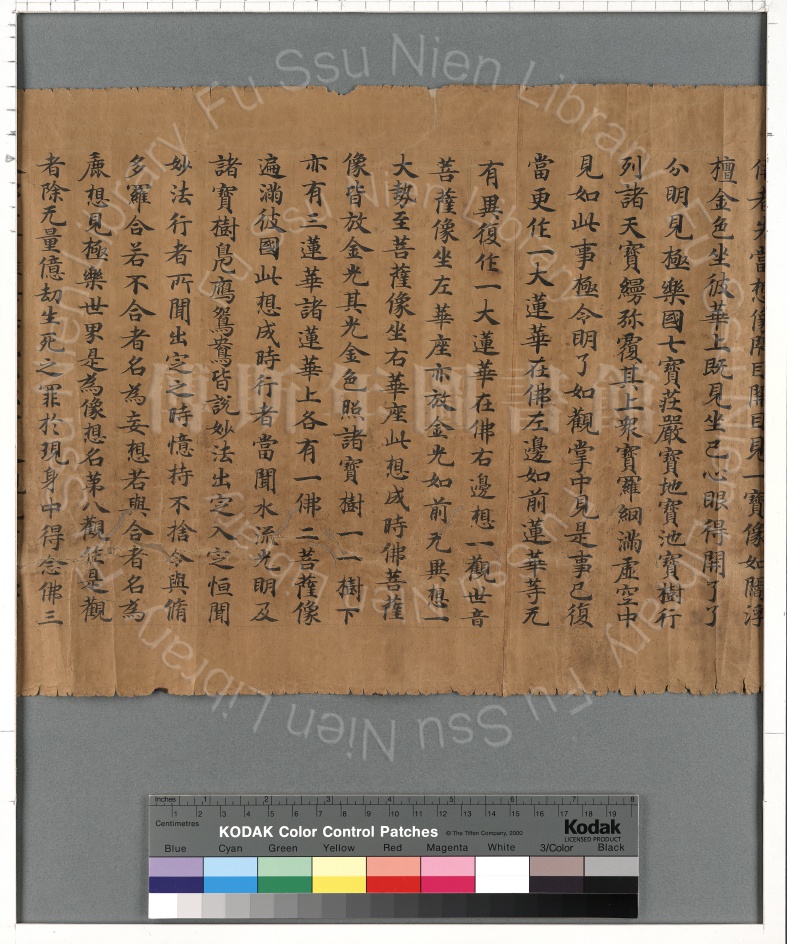 像者先當想像閇目開目見一寶像如閻浮
檀金色坐彼華上既見坐已心眼得開了了
分明見極樂國七寶莊嚴寶地寶池寶樹行
列諸天寶縵弥覆其上衆寶羅網滿虛空中
見如此事極令明了如觀掌中見是事已復
當更作一大蓮華在佛左邊如前蓮華等无
有異復作一大蓮華在佛右邊想一觀世音
菩薩像坐左華座亦放金光如前无異想一
大勢至菩薩像坐右華座此想成時佛菩薩
像皆放金光其光金色照諸寶樹一一樹下
亦有三蓮華諸蓮華上各有一佛二菩薩像
遍滿彼國此想成時行者當聞水流光明及
諸寶樹鳧鴈鴛鴦皆說妙法出定入定恒聞
妙法行者所聞出定之時憶持不捨令與脩
多羅合若不合者名為妄想若與合者名為
麁想見極樂世界是為像想名第八觀作是觀
者除无量億劫生死之罪於現身中得念佛三
Fu Ssu Nien Library
傅斯年圖書館
Inches 1 2 3 4 5 6 7 8
Centimetres 1 2 3 4 5 6 7 8 9 10 11 12 13 14 15 16 17 18 19
KODAK Color Control Patches © The Tiffen Company, 2000
Kodak
LICENSED PRODUCT
Blue Cyan Green Yellow Red Magenta White 3/Color Black